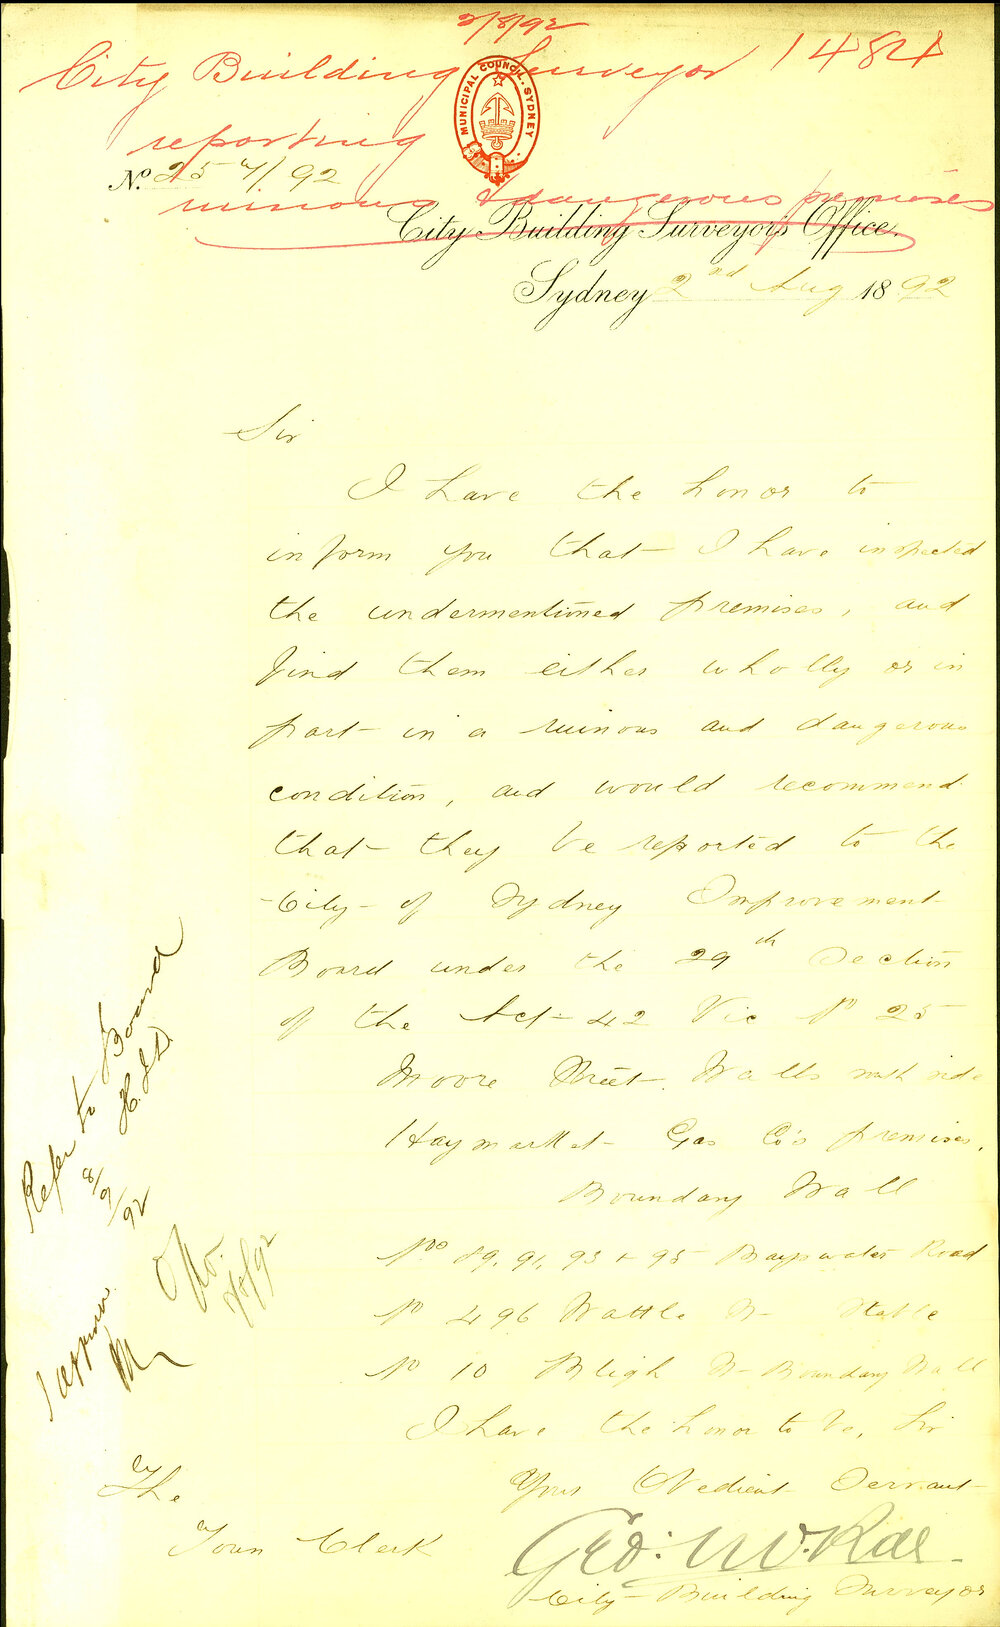 2/8/92
City Building Surveyor 1484
reporting
MUNICIPAL COUNCIL. SYDNEY
No. 257/92
ruinous & dangerous premises
City Building Surveyor's Office.
Sydney 2nd Aug 1892
Sir
I have the honor to
inform you that I have inspected
the undermentioned premises, and
find them either wholly or in
part in a ruinous and dangerous
condition, and would recommend
that they be reported to the
City of Sydney Improvement
Board under the 29th Section
of the Act 42 Vic No 25
Moore Street Walls south side
Haymarket Gas Co's premises.
Boundary Wall
Nos 89, 91, 93 + 95 Bayswater Road
No 496 Wattle St Stable
No 10 Bligh St Boundary Wall
I have the honor to be, Sir
Your Obedient Servant
Geo: McRae
City Building Surveyor
The
Town Clerk
Refer to Board
8/9/92
I approve